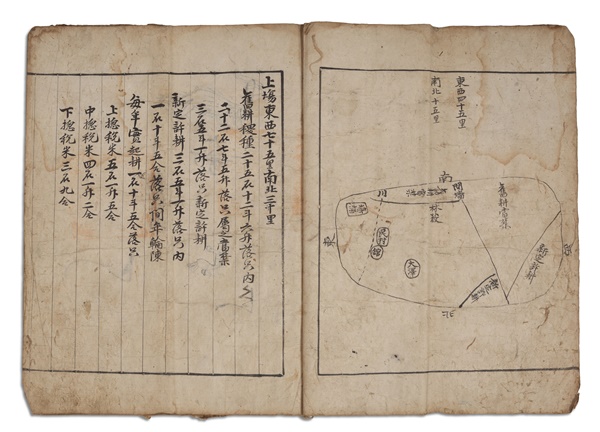 東西四十五里
南北十五里
南
開場
林藪
川
東
民村
大澤
北
西
新定許耕
上場東西七十五里南北三十里
舊耕稷種二十五石十二斗六升落只內
二十二石七斗五升落只屬之舊葉
三石五斗一升落只新定許耕
新定許耕 三石五斗一升落只內
一石十斗五合落只間年輪陳
每年實起耕一石十斗五合落只
上摠稅米五石一斗五合
中摠稅米四石一斗二合
下摠稅米三石九合